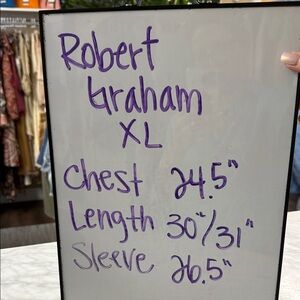 Robert
Graham
XL
Chest 24.5"
Length 30"/31"
Sleeve 26.5"